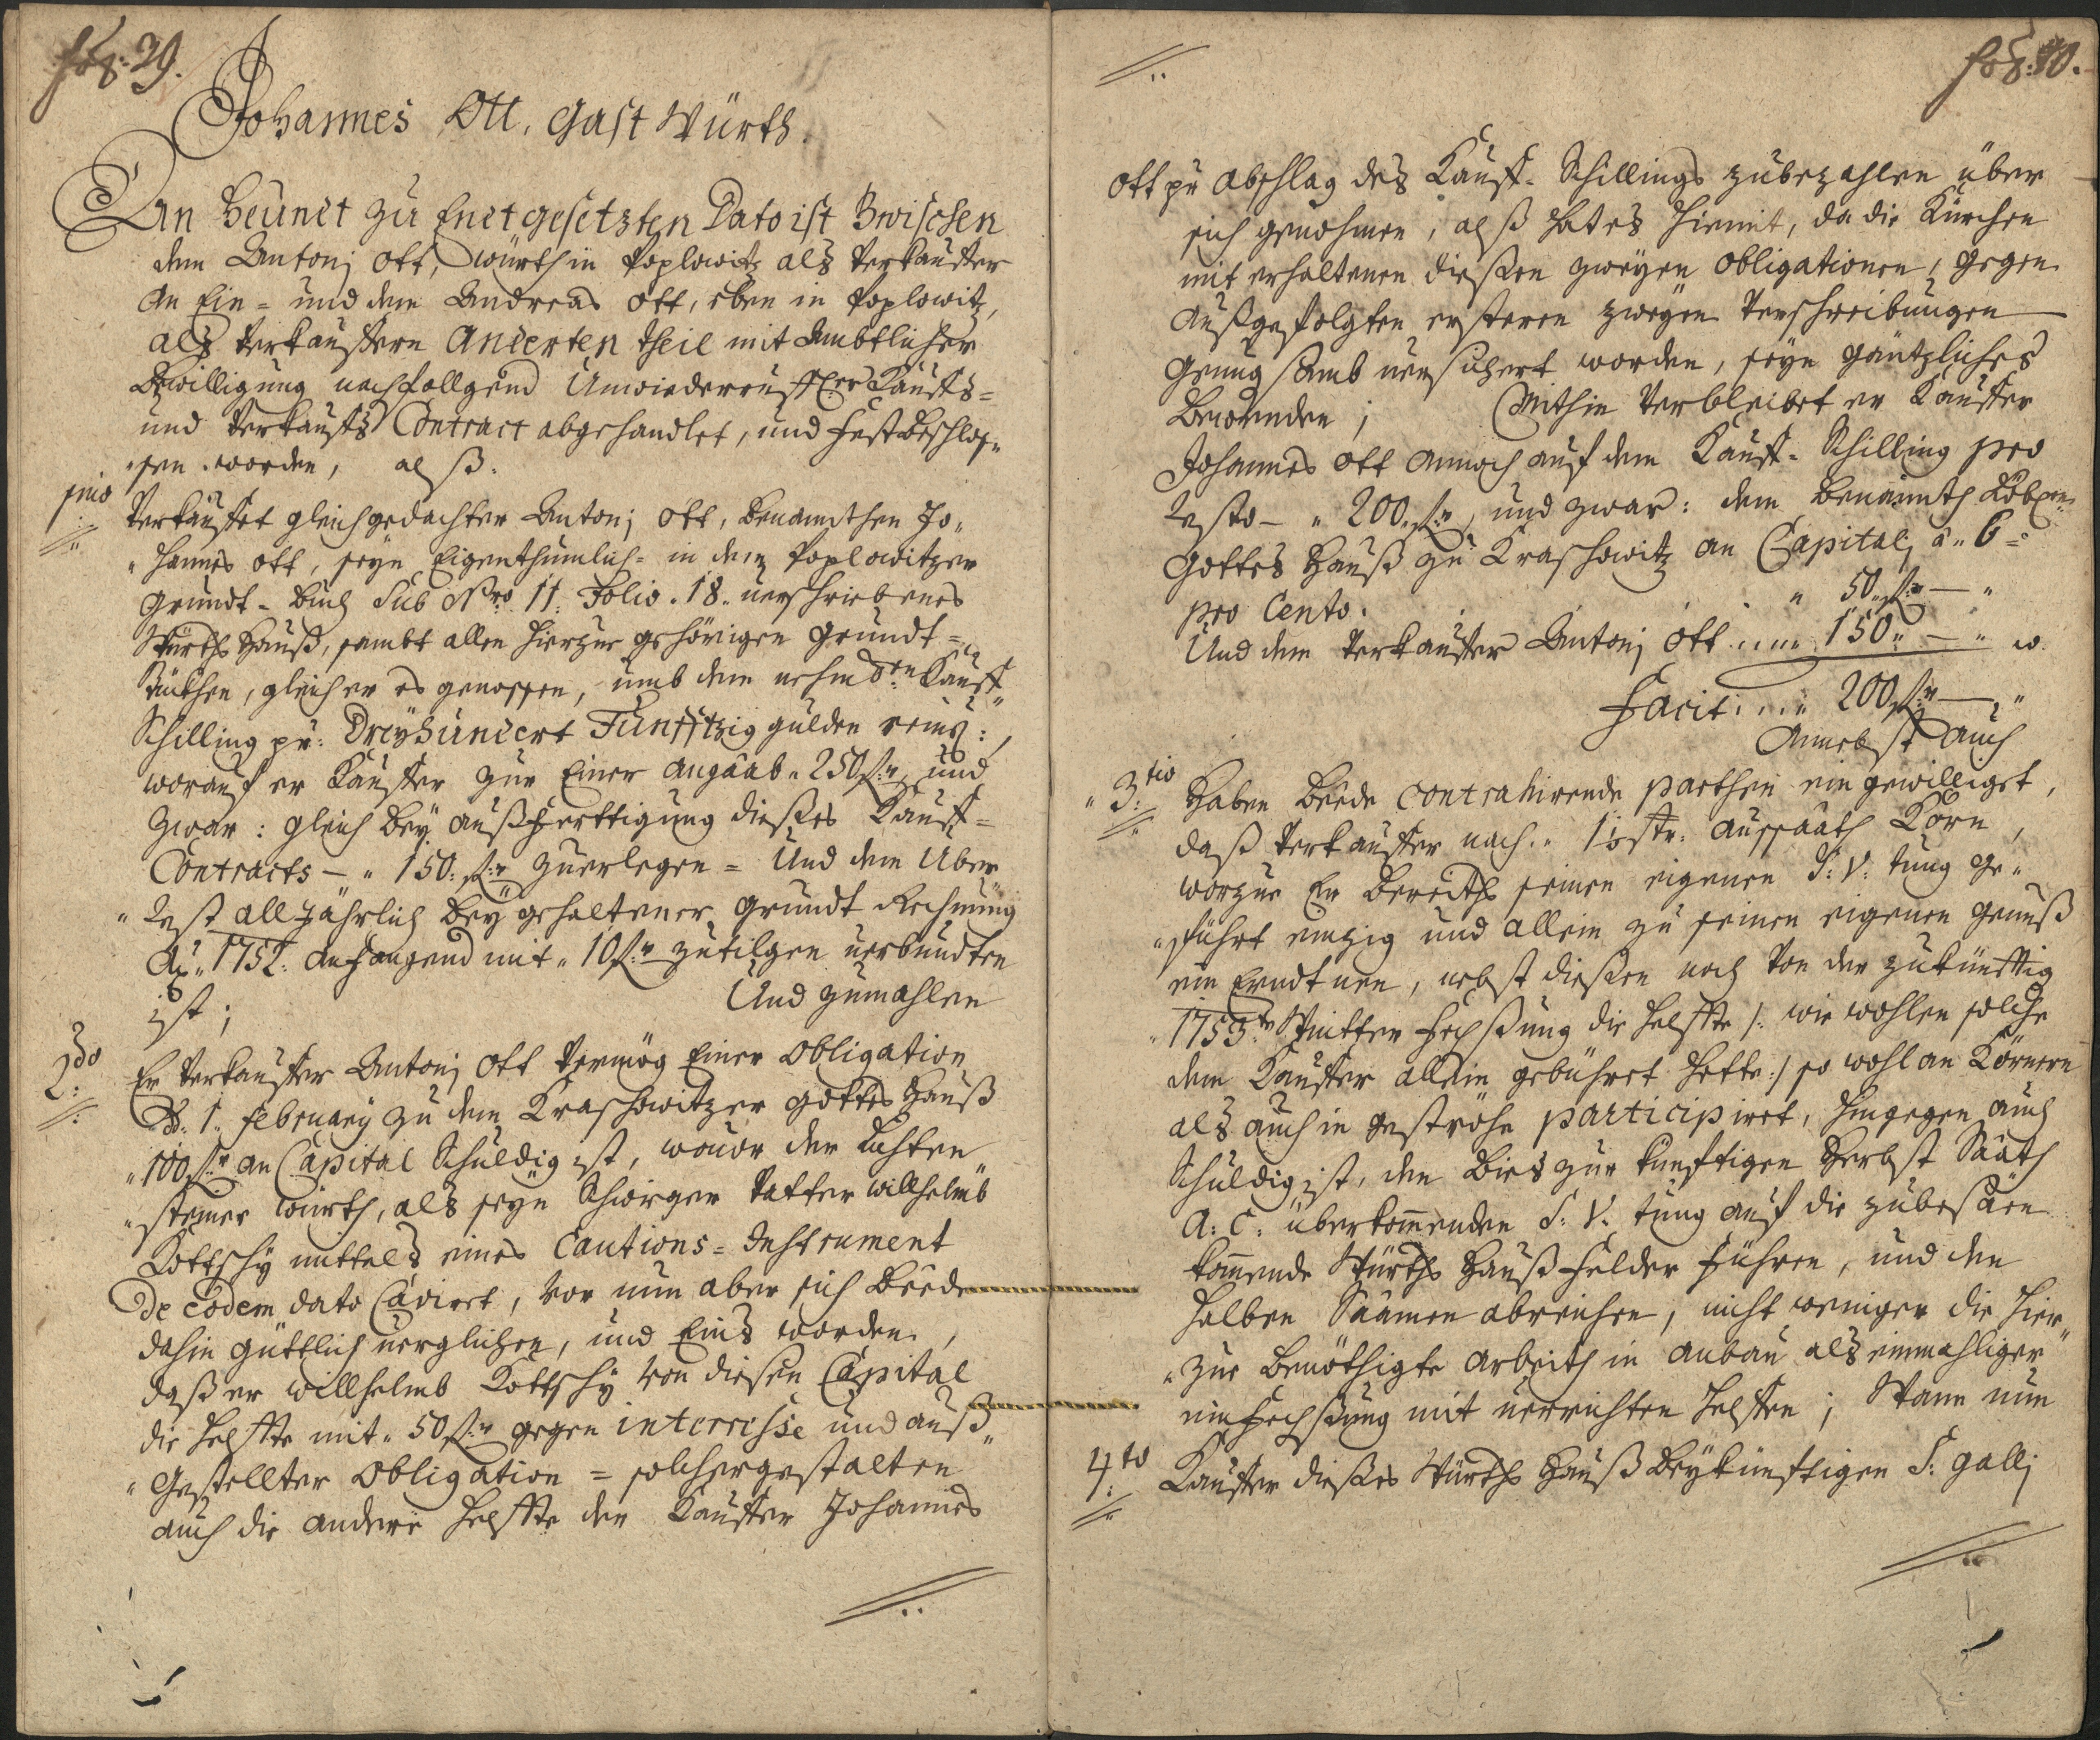 fol: 39.
Johannes Ott, Gast Würth.
An Heünt zu Endt gesetzten Dato ist Zwischen
dem Antonj Ott, Würth in Poplowitz als Verkauffer
an Ein= und dem Andreas Ott, eben in Poplowitz,
als Verkauffern Anderten theil mit Ambtlicher
Bewilligung nachfollgend Unwiederrufflicher Kauffs=
und Verkauffs Contract abgehandlet, und Fest beschlos„
„sen worden, alß.
pmo Verkauffet gleichgedachter Antonj Ott, benandthen Jo„
„hannes Ott, seyn Eigenthumlich= in dem Poplowitzer
Grundt-Buch Sub Nro 11. Folio. 18. verschriebenes
Würths Hauß, sambt allen hierzue gehörigen Grundt=
Stückhen, gleich er es genossen, umb den Kauff„
Schilling pr: Dreyhundert Funfftzig gulden reins:,
worauf er Kauffer zur Einer Angaab „ 250 fl:r und
zwar: gleich bey Außfferttigung dießes Kauff=
Contracts – „ 150: fl:r zuerlegen = Und den Uber
„Rest alljährlich bey gehaltener Grundt Rechnung
Ao „ 1752. anfangend mit „ 10 fl:r zutilgen verbundten
ist; Und zumahlen
2do: Er Verkauffer Antonj Ott Vermög Einer Obligation
D. 1. February zu dem Kraschowitzer Gottes Hauß
„100 fl:r an Capital Schuldig ist, wovor der Lichten
„steiner Würth, als seyn Schwiger Vatter Willhelmb
Kottschy mittels eines Cautions=Instrument
De eodem dato Caviret, Vor nun aber sich Beede
dahin güttlich verglichen, und Eins worden,
daß er Willhelmb Kottschy Von diesen Capital
die Helffte mit „ 50 fl:r gegen interresse und auß„
„Gestellter Obligation = solchergestalten
auch die andere Helffte der Kauffer Johannes
fol: 40.
Ott pr Abschlag des Kauff-Schillings zubezahlen über
sich genohmen, alß hat es hiemit, da die Kürchen
mit erhaltenen dießen zweyen Obligationen, gegen
außgefolgten ersteren zweyen Verschreibungen
genugsamb versichert worden, seyn gäntzliches
Bewenden; Mithin Verbleibet er Kauffer
Johannes Ott annoch auf dem Kauff-Schilling pro
Resto – „ 200 fl:r, und zwar: dem benannth Löbl:
Gottes Hauß zu Kraschowitz an Capitalj à „ 6 =
pro Cento. „ 50 fl:r – „
Und dem Verkauffer Antonj Ott .... 150 „ – „
Facit: ... 200 fl:r – „
Annebst auch
„3:tio Haben Beede contrahirende Partheÿen eingewilliget,
daß Verkauffer nach „ Aussaath Korn,
worzue Er bereiths seinen eigenen S: V: tung ge„
„führt einzig und allein zu seinen eigenen genuß
ein Erndtnen, nebst dießen noch Von der zukünfftig
„1753.te Wintter Fechßung die Helffte /: wie wohlen solche
dem Kauffer allein gebühret hette :/ so wohl an Körnern
als auch in gestrohe participiret, hingegen auch
Schuldig ist, den Bies zur künfftigen Herbst Saath
A: C: überkommenden S: V: tung auf die zubesäen
kommende Würths Hauß Felder Führen, und den
halben Saamen abreichen, nicht weniger die hier„
„zue benöthigte Arbeith in anbau als einmahliger
einfechßung mit verrichten helffen; Wann nun
4:to Kauffer dießes Würths Hauß beykünfftigen S: Gallj